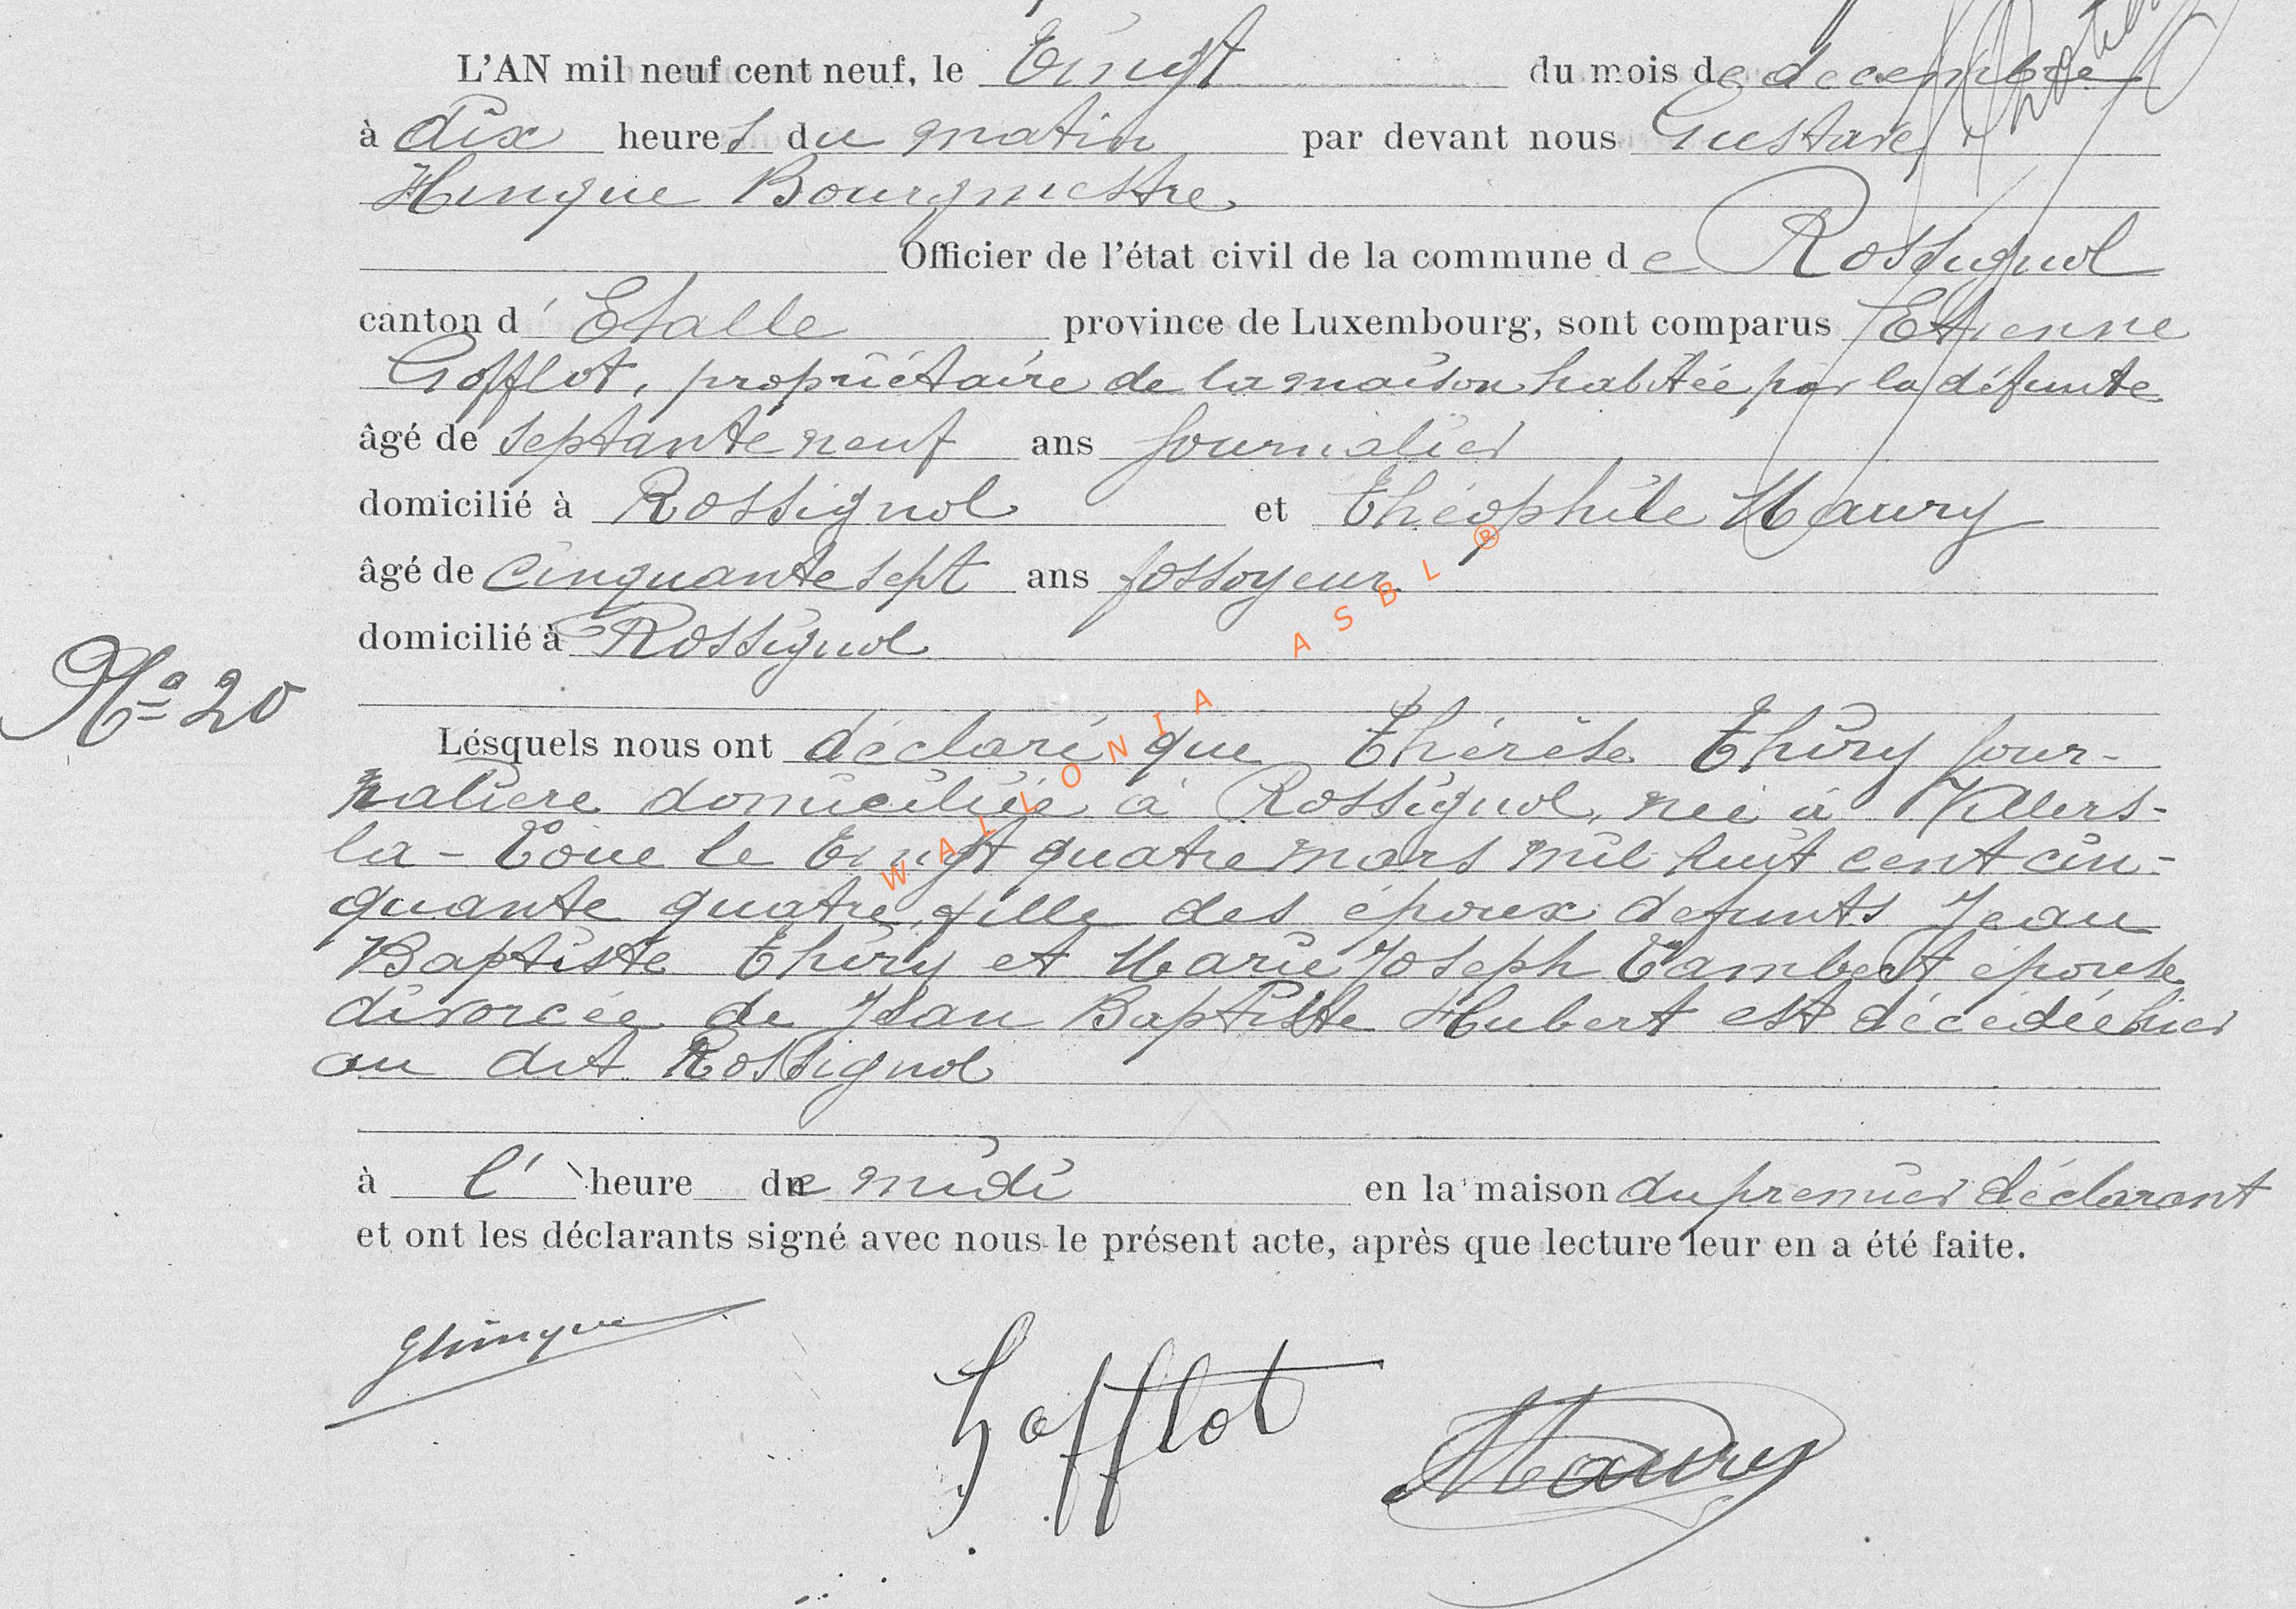 L'AN mil neuf cent neuf, le Vingt du mois de décembre
à dix heures du matin par devant nous Gustave
Hinque Bourgmestre
Officier de l'état civil de la commune de Rossignol
canton d'Etalle province de Luxembourg, sont comparus Etienne
Gofflot, propriétaire de la maison habitée par la défunte
âgé de septante neuf ans journalier
domicilié à Rossignol et Théophile Maury
âgé de cinquante sept ans fossoyeur
domicilié à Rossignol
N° 20
Lésquels nous ont déclaré que Thérèse Thiry jour-
nalière domiciliée à Rossignol, née à Villers-
la-Loue le vingt quatre mars mil huit cent cin-
quante quatre, fille des époux défunts Jean
Baptiste Thiry et Marie Joseph Lambert épouse
divorcée de Jean Baptiste Hubert est décédée hier
au dit Rossignol
à l'heure de midi en la maison du premier déclarant
et ont les déclarants signé avec nous le présent acte, après que lecture leur en a été faite.
GHinque
Gofflot
Maury
WALLONIA ASBL ®